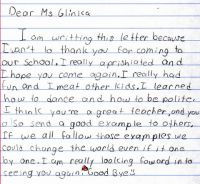 Dear Ms Glinica
I am writting this letter because
I wan't to thank you for coming to
our school. I really aprishiated and
I hope you come again. I really had
fun and I meat other kids. I learned
how to dance and how to be polite.
I think you're a great teacher, and you
So send a good example to others.
If we all fallow those examples we
could change the world even if it one
by one. I am really looking foword in to
seeing you again. Good Bye!!